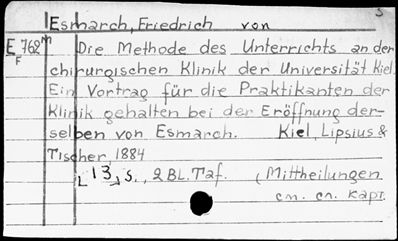 Esmarch, Friedrich von
E 762 m Die Methode des Unterrichts an der
F
chirurgischen Klinik der Universität Kiel.
Ein Vortrag für die Praktikanten der
Klinik gehalten bei der Eröffnung der-
selben von Esmarch. Kiel, Lipsius &
Tischer, 1884
[13] S., 2 Bl. Taf. (Mittheilungen